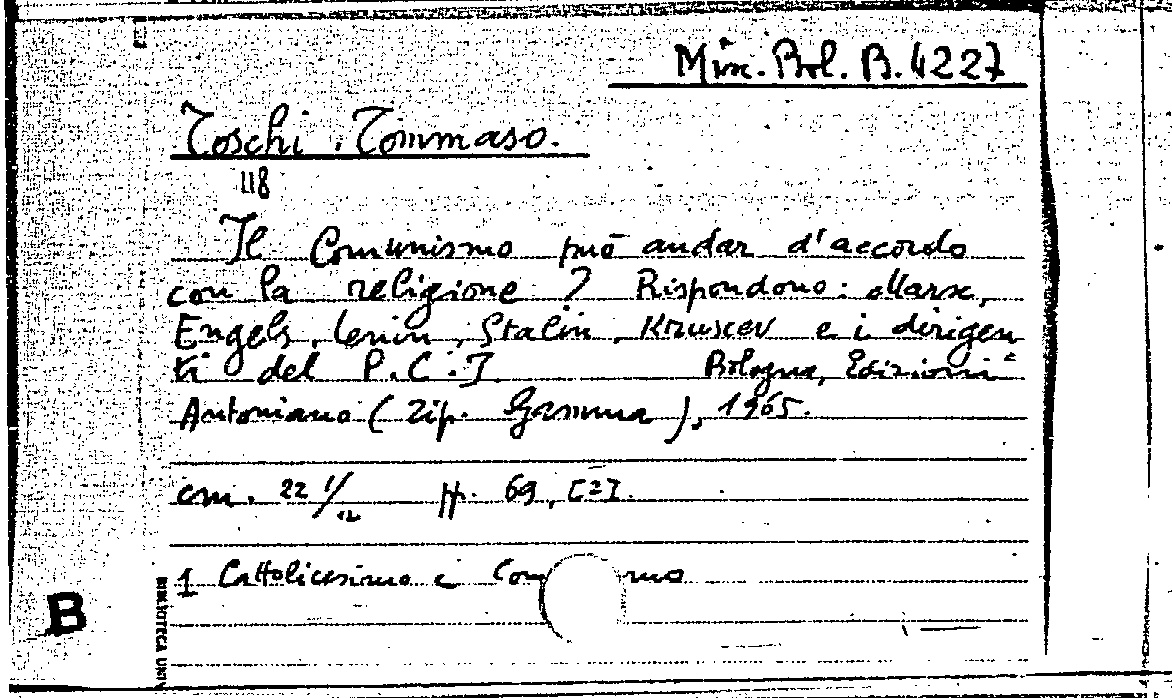 Misc. Bol. B. 4227
Toschi, Tommaso.
118
Il Comunismo può andar d'accordo
con la religione? Rispondono: Marx,
Engels, Lenin, Stalin, Kruscev e i dirigen
ti del P.C.I. Bologna, Edizioni
Antoniano (tip. Gamma), 1965.
cm. 22 1/2 pp. 69, [2].
1 Cattolicesimo e Com mo
B
BIBLIOTECA UNIV